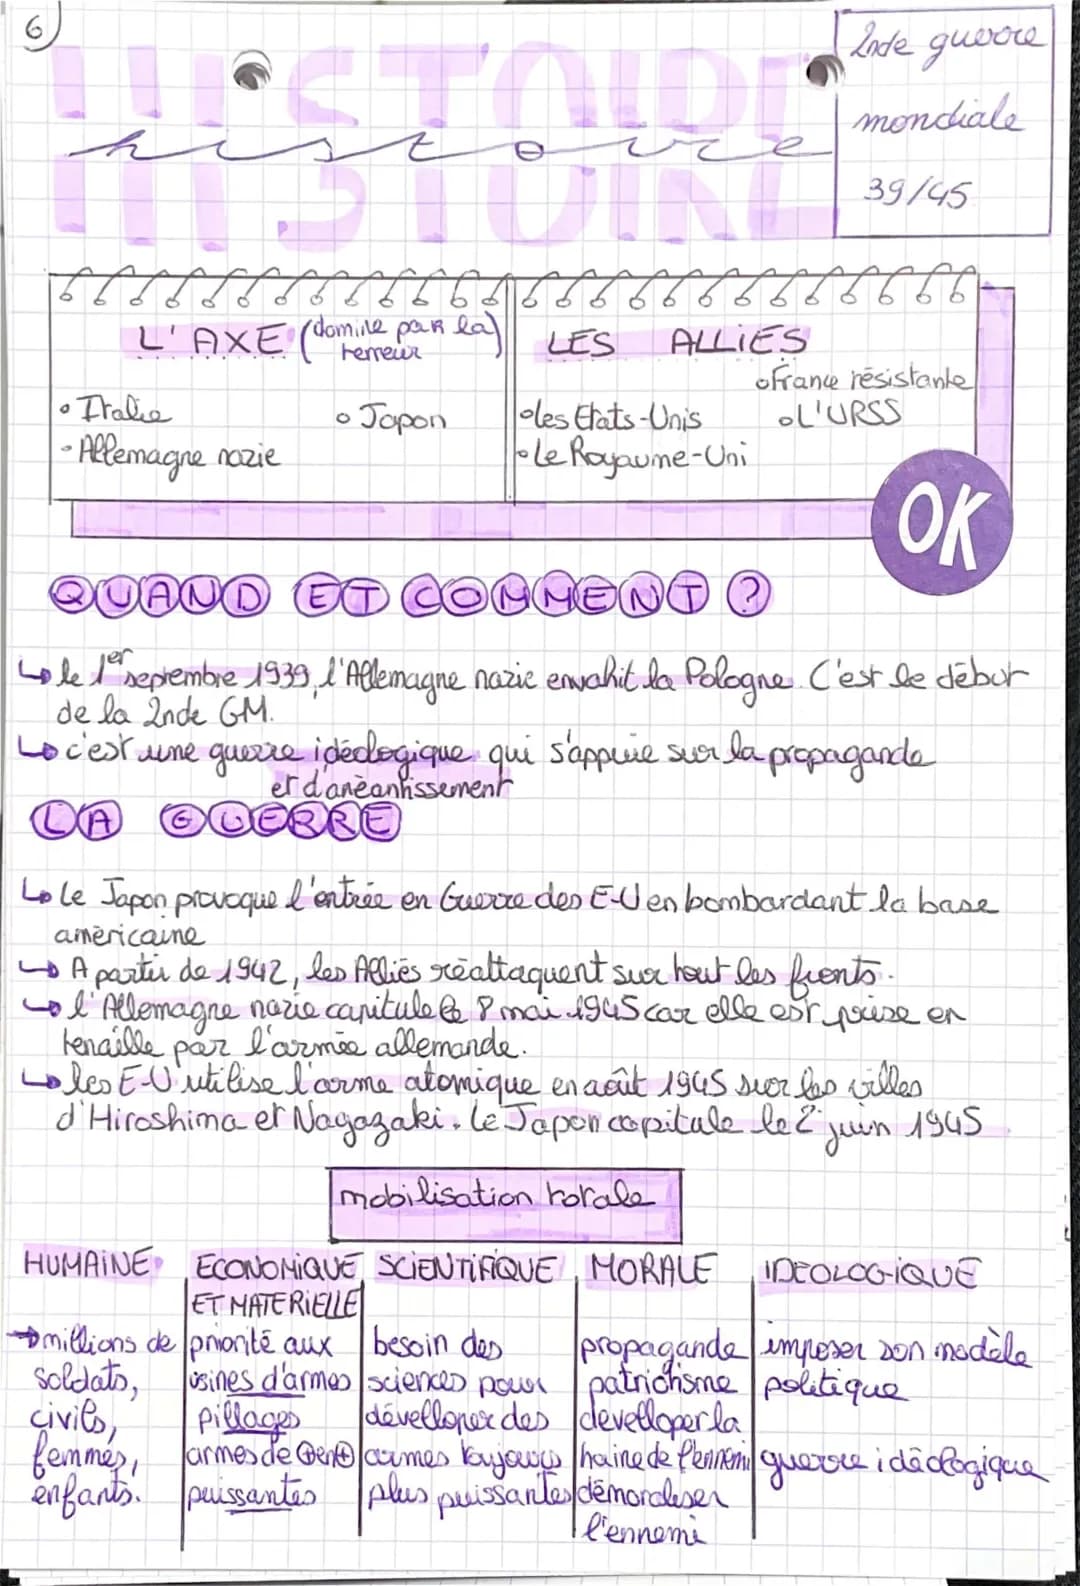 6
HISTOIRE
histoire
HISTOIRE
2nde guerre
mondiale
39/45
L'AXE (domine par la terreur)
• Italie
• Japon
• Allemagne nazie
LES ALLIÉS
• France résistante
• les Etats-Unis
• L'URSS
• Le Royaume-Uni
OK
QUAND ET COMMENT ?
↳ le 1er septembre 1939, l'Allemagne nazie envahit la Pologne. C'est le début
de la 2nde GM.
↳ c'est une guerre idéologique qui s'appuie sur la propagande
et d'anéantissement
LA GUERRE
↳ Le Japon provoque l'entrée en Guerre des E-U en bombardant la base
américaine
↳ A partir de 1942, les Alliés réattaquent sur tout les fronts.
↳ l'Allemagne nazie capitule le 8 mai 1945 car elle est prise en
tenaille par l'armée allemande.
↳ les E-U utilise l'arme atomique en août 1945 sur les villes
d'Hiroshima et Nagazaki. Le Japon capitule le 2 juin 1945
mobilisation totale
HUMAINE
→ millions de
soldats,
civils,
femmes,
enfants.
ECONOMIQUE
ET MATERIELLE
priorité aux
usines d'armes
pillages
armes de ⊕ en ⊕
puissantes
SCIENTIFIQUE
besoin des
sciences pour
dévelloper des
armes toujours
plus puissantes
MORALE
propagande
patriotisme
develloper la
haine de l'ennemi
démoraliser
l'ennemi
IDEOLOGIQUE
imposer son modèle
politique
guerre idéologique